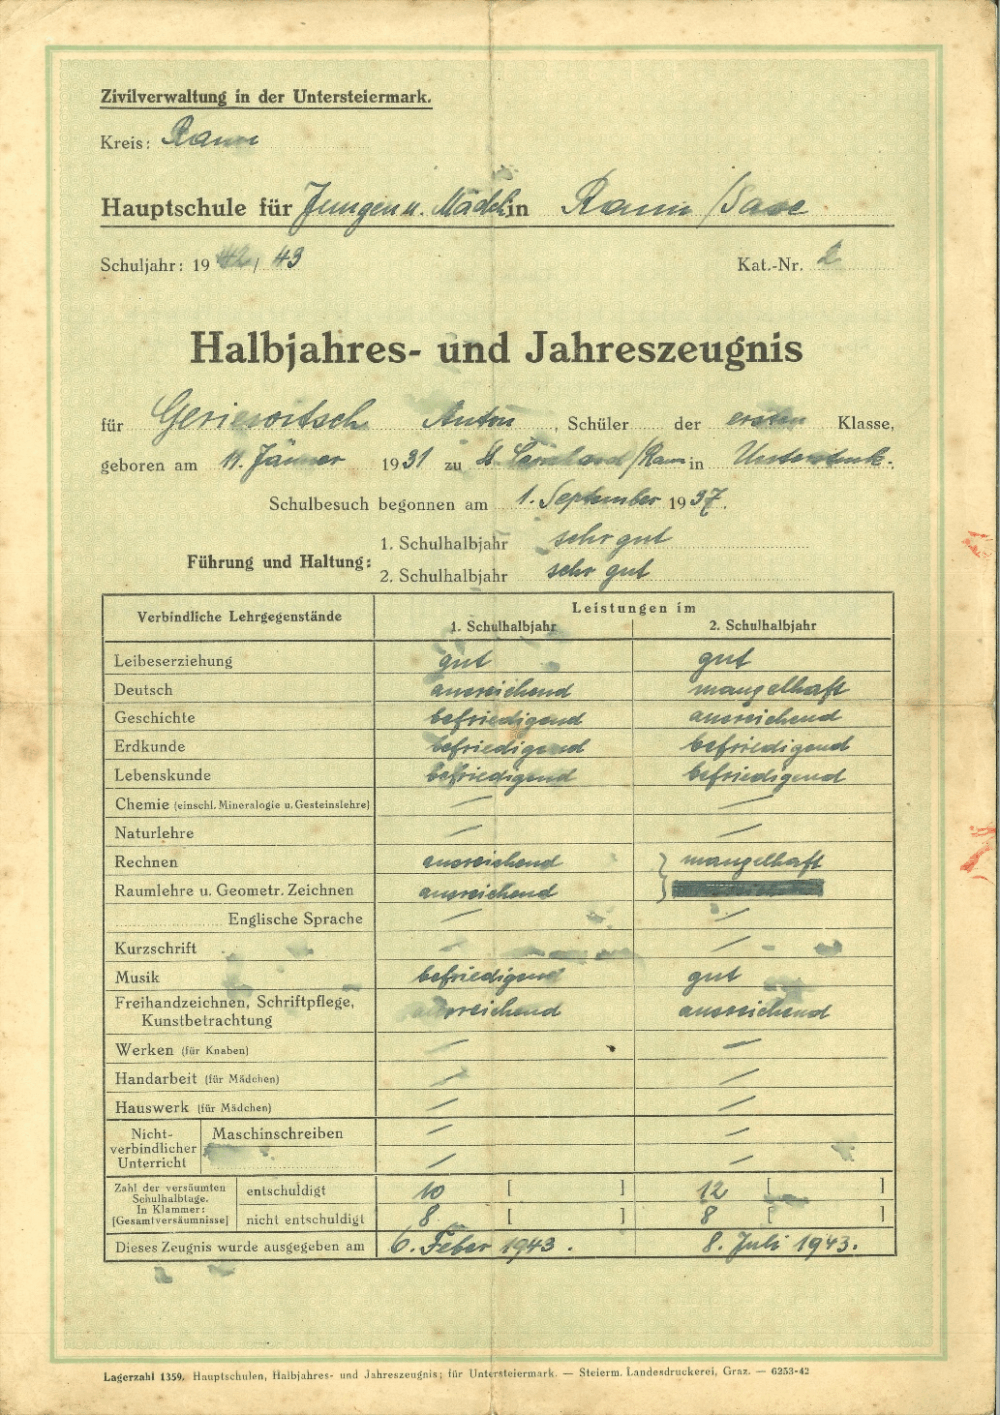 Zivilverwaltung in der Untersteiermark.
Kreis: Rann
Hauptschule für Jungen u. Mädel in Rann /Save
Schuljahr: 19 42/ 43 Kat.-Nr. 2
Halbjahres- und Jahreszeugnis
für Geriewitsch Anton, Schüler der ersten Klasse,
geboren am 11. Jänner 1931 zu St. /Rann in
Schulbesuch begonnen am 1. September 1937.
1. Schulhalbjahr sehr gut
Führung und Haltung:
2. Schulhalbjahr sehr gut
Verbindliche Lehrgegenstände Leistungen im
1. Schulhalbjahr 2. Schulhalbjahr
Leibeserziehung gut gut
Deutsch ausreichend mangelhaft
Geschichte befriedigend ausreichend
Erdkunde befriedigend befriedigend
Lebenskunde befriedigend befriedigend
Chemie (einschl. Mineralogie u. Gesteinslehre) — —
Naturlehre — —
Rechnen ausreichend } mangelhaft
Raumlehre u. Geometr. Zeichnen ausreichend }
Englische Sprache — —
Kurzschrift — —
Musik befriedigend gut
Freihandzeichnen, Schriftpflege,
Kunstbetrachtung ausreichend ausreichend
Werken (für Knaben) — —
Handarbeit (für Mädchen) — —
Hauswerk (für Mädchen) — —
Nicht-
verbindlicher
Unterricht
Maschinschreiben — —
— —
Zahl der versäumten
Schulhalbtage.
In Klammer:
[Gesamtversäumnisse]
entschuldigt 10 [ ] 12 [ ]
nicht entschuldigt 8 [ ] 8 [ ]
Dieses Zeugnis wurde ausgegeben am 6. Feber 1943. 8. Juli 1943.
Lagerzahl 1359. Hauptschulen, Halbjahres- und Jahreszeugnis; für Untersteiermark. — Steierm. Landesdruckerei, Graz. — 6253-42